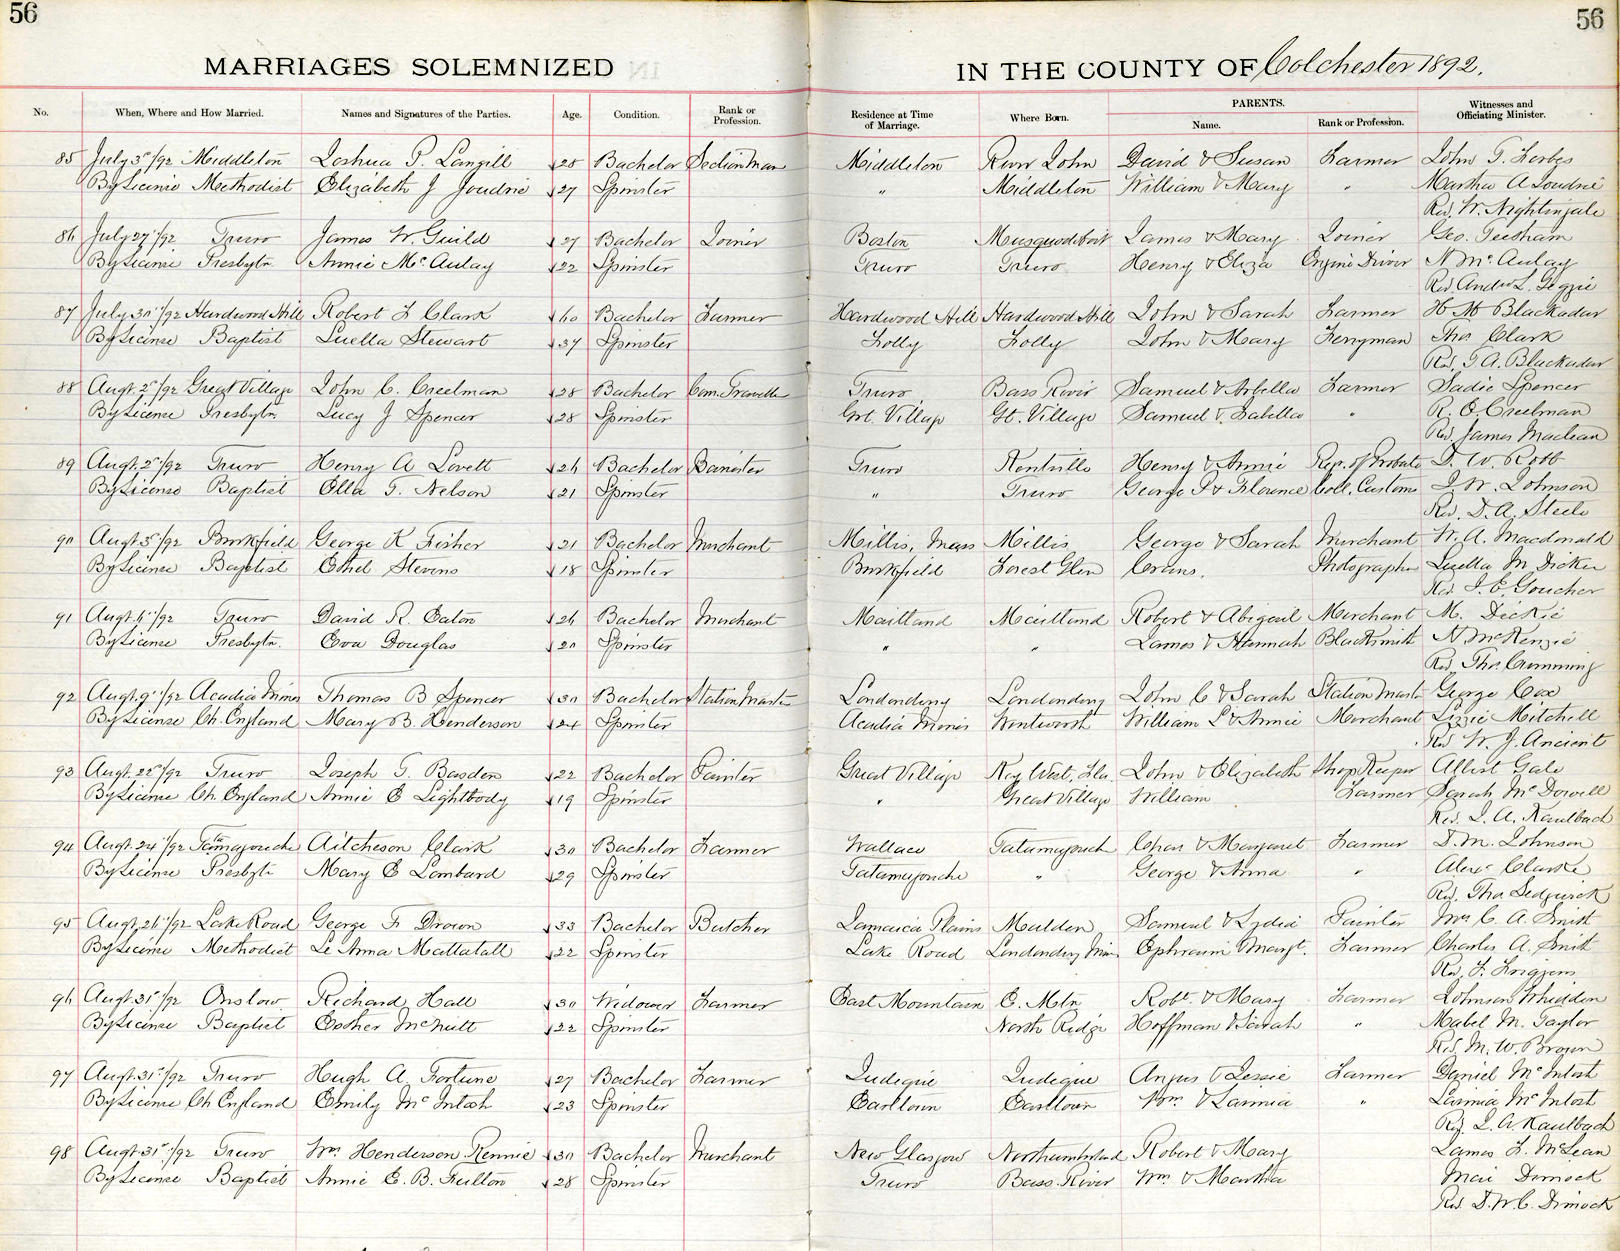 56
56
MARRIAGES SOLEMNIZED
IN THE COUNTY OF Colchester 1892.
No. When, Where and How Married. Names and Signatures of the Parties. Age. Condition. Rank or Profession. Residence at Time of Marriage. Where Born. PARENTS. Name. Rank or Profession. Witnesses and Officiating Minister.
85 July 30/92 Middleton Joshua P. Langill 28 Bachelor Section Man Middleton River John David & Susan Farmer John T. Forbes
By License Methodist Elizabeth J Joudrie 27 Spinster " Middleton William & Mary " Martha A Joudrie
Rev. W. Nightingale
86 July 27/92 Truro James W. Guild 27 Bachelor Joiner Boston Musquodoboit James & Mary Joiner Geo.
By License Presbytn Annie McAulay 22 Spinster Truro Truro Henry & Eliza Engine Driver N McAulay
Rev. Andw L. Geggie
87 July 30/92 Hardwood Hill Robert F Clark 60 Bachelor Farmer Hardwood Hill Hardwood Hill John & Sarah Farmer H M Blackadar
By License Baptist Luella Stewart 37 Spinster Folly Folly John & Mary Ferryman Thos Clark
Rev. T. A. Blackadar
88 Augt. 2/92 Great Village John C. Creelman 28 Bachelor Com. Traveller Truro Bass River Samuel & Arbella Farmer Sadie Spencer
By License Presbytn Lucy J Spencer 28 Spinster Grt. Village Gt. Village Samuel & Isabella " R. O. Creelman
Rev. James Maclean
89 Augt. 2/92 Truro Henry A Lovett 26 Bachelor Barrister Truro Kentville Henry & Annie Reg. of Probate D. W. Robb
By License Baptist Ella T. Nelson 21 Spinster " Truro George P & Florence Coll. Customs J. W. Johnson
Rev. D. A. Steele
90 Augt. 3/92 Brookfield George K Fisher 21 Bachelor Merchant Millis, Mass Millis George & Sarah Merchant W. A. Macdonald
By License Baptist Ethel Stevens 18 Spinster Brookfield Forest Glen Photographer Luella M Dickie
Rev. J. E. Goucher
91 Augt. 4/92 Truro David R. Eaton 26 Bachelor Merchant Maitland Maitland Robert & Abigail Merchant M. Dickie
By License Presbytn. Eva Douglas 20 Spinster " " James & Hannah Blacksmith N McKenzie
Rev. Thos Cumming
92 Augt. 9/92 Acadia Mines Thomas B Spencer 30 Bachelor Station Master Londonderry Londonderry John C & Sarah Station Mast George Cox
By License Ch. England Mary B. Henderson 24 Spinster Acadia Mines Wentworth William L & Annie Merchant Lizzie Mitchell
Rev W. J. Ancient
93 Augt. 22/92 Truro Joseph T. Basden 22 Bachelor Painter Great Village Key West, Fla. John & Elizabeth Shop Keeper Albert Gale
By License Ch. England Annie E Lightbody 19 Spinster " Great Village William Farmer Sarah McDowell
Rev. J. A. Kaulbach
94 Augt. 24/92 Tatamagouche Aitcheson Clark 30 Bachelor Farmer Wallace Tatamagouch Chas & Margaret Farmer D. M. Johnson
By License Presbytn Mary E Lombard 29 Spinster Tatamagouche " George & Anna " Alexr Clarke
Rev. Thos Sedgwick
95 Augt. 26/92 Lake Road George F Drown 33 Bachelor Butcher Jamaica Plains Maulden Samuel & Lydia Painter Mrs C. A. Smith
By License Methodist Le Anna Mattatall 22 Spinster Lake Road Londonderry Mines Ephraim Margt. Farmer Charles A. Smith
Rev. F. Friggens
96 Augt. 31/92 Onslow Richard Hall 30 Widower Farmer East Mountain E. Mtn Robt. & Mary Farmer Johnson Whidden
By License Baptist Esther McNutt 22 Spinster North Ridge Hoffman & Sarah " Mabel M. Taylor
Rev. M. W. Brown
97 Augt. 31/92 Truro Hugh A. Fortune 27 Bachelor Farmer Judique Judique Angus & Jessie Farmer Daniel McIntosh
By License Ch England Emily McIntosh 23 Spinster Earltown Earltown Wm & Lamia " Lamia McIntosh
Rev. J. A. Kaulbach
98 Augt 31/92 Truro Wm. Henderson Rennie 30 Bachelor Merchant New Glasgow Northumberland Robert & Mary James F. McLean
By License Baptist Annie E. B. Fulton 28 Spinster Truro Bass River Wm & Martha Mai Dimock
Rev. D. W. C. Dimock